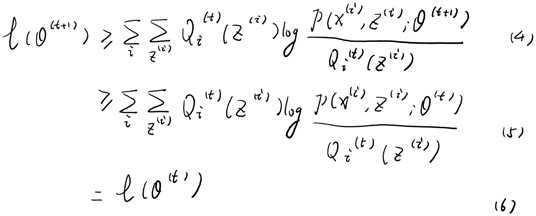 ℓ(θ^{(t+1)}) ≥ ∑_i ∑_{z^{(i)}} Q_i^{(t)}(z^{(i)}) log \frac{p(x^{(i)}, z^{(i)}; θ^{(t+1)})}{Q_i^{(t)}(z^{(i)})} (4)
≥ ∑_i ∑_{z^{(i)}} Q_i^{(t)}(z^{(i)}) log \frac{p(x^{(i)}, z^{(i)}; θ^{(t)})}{Q_i^{(t)}(z^{(i)})} (5)
= ℓ(θ^{(t)}) (6)